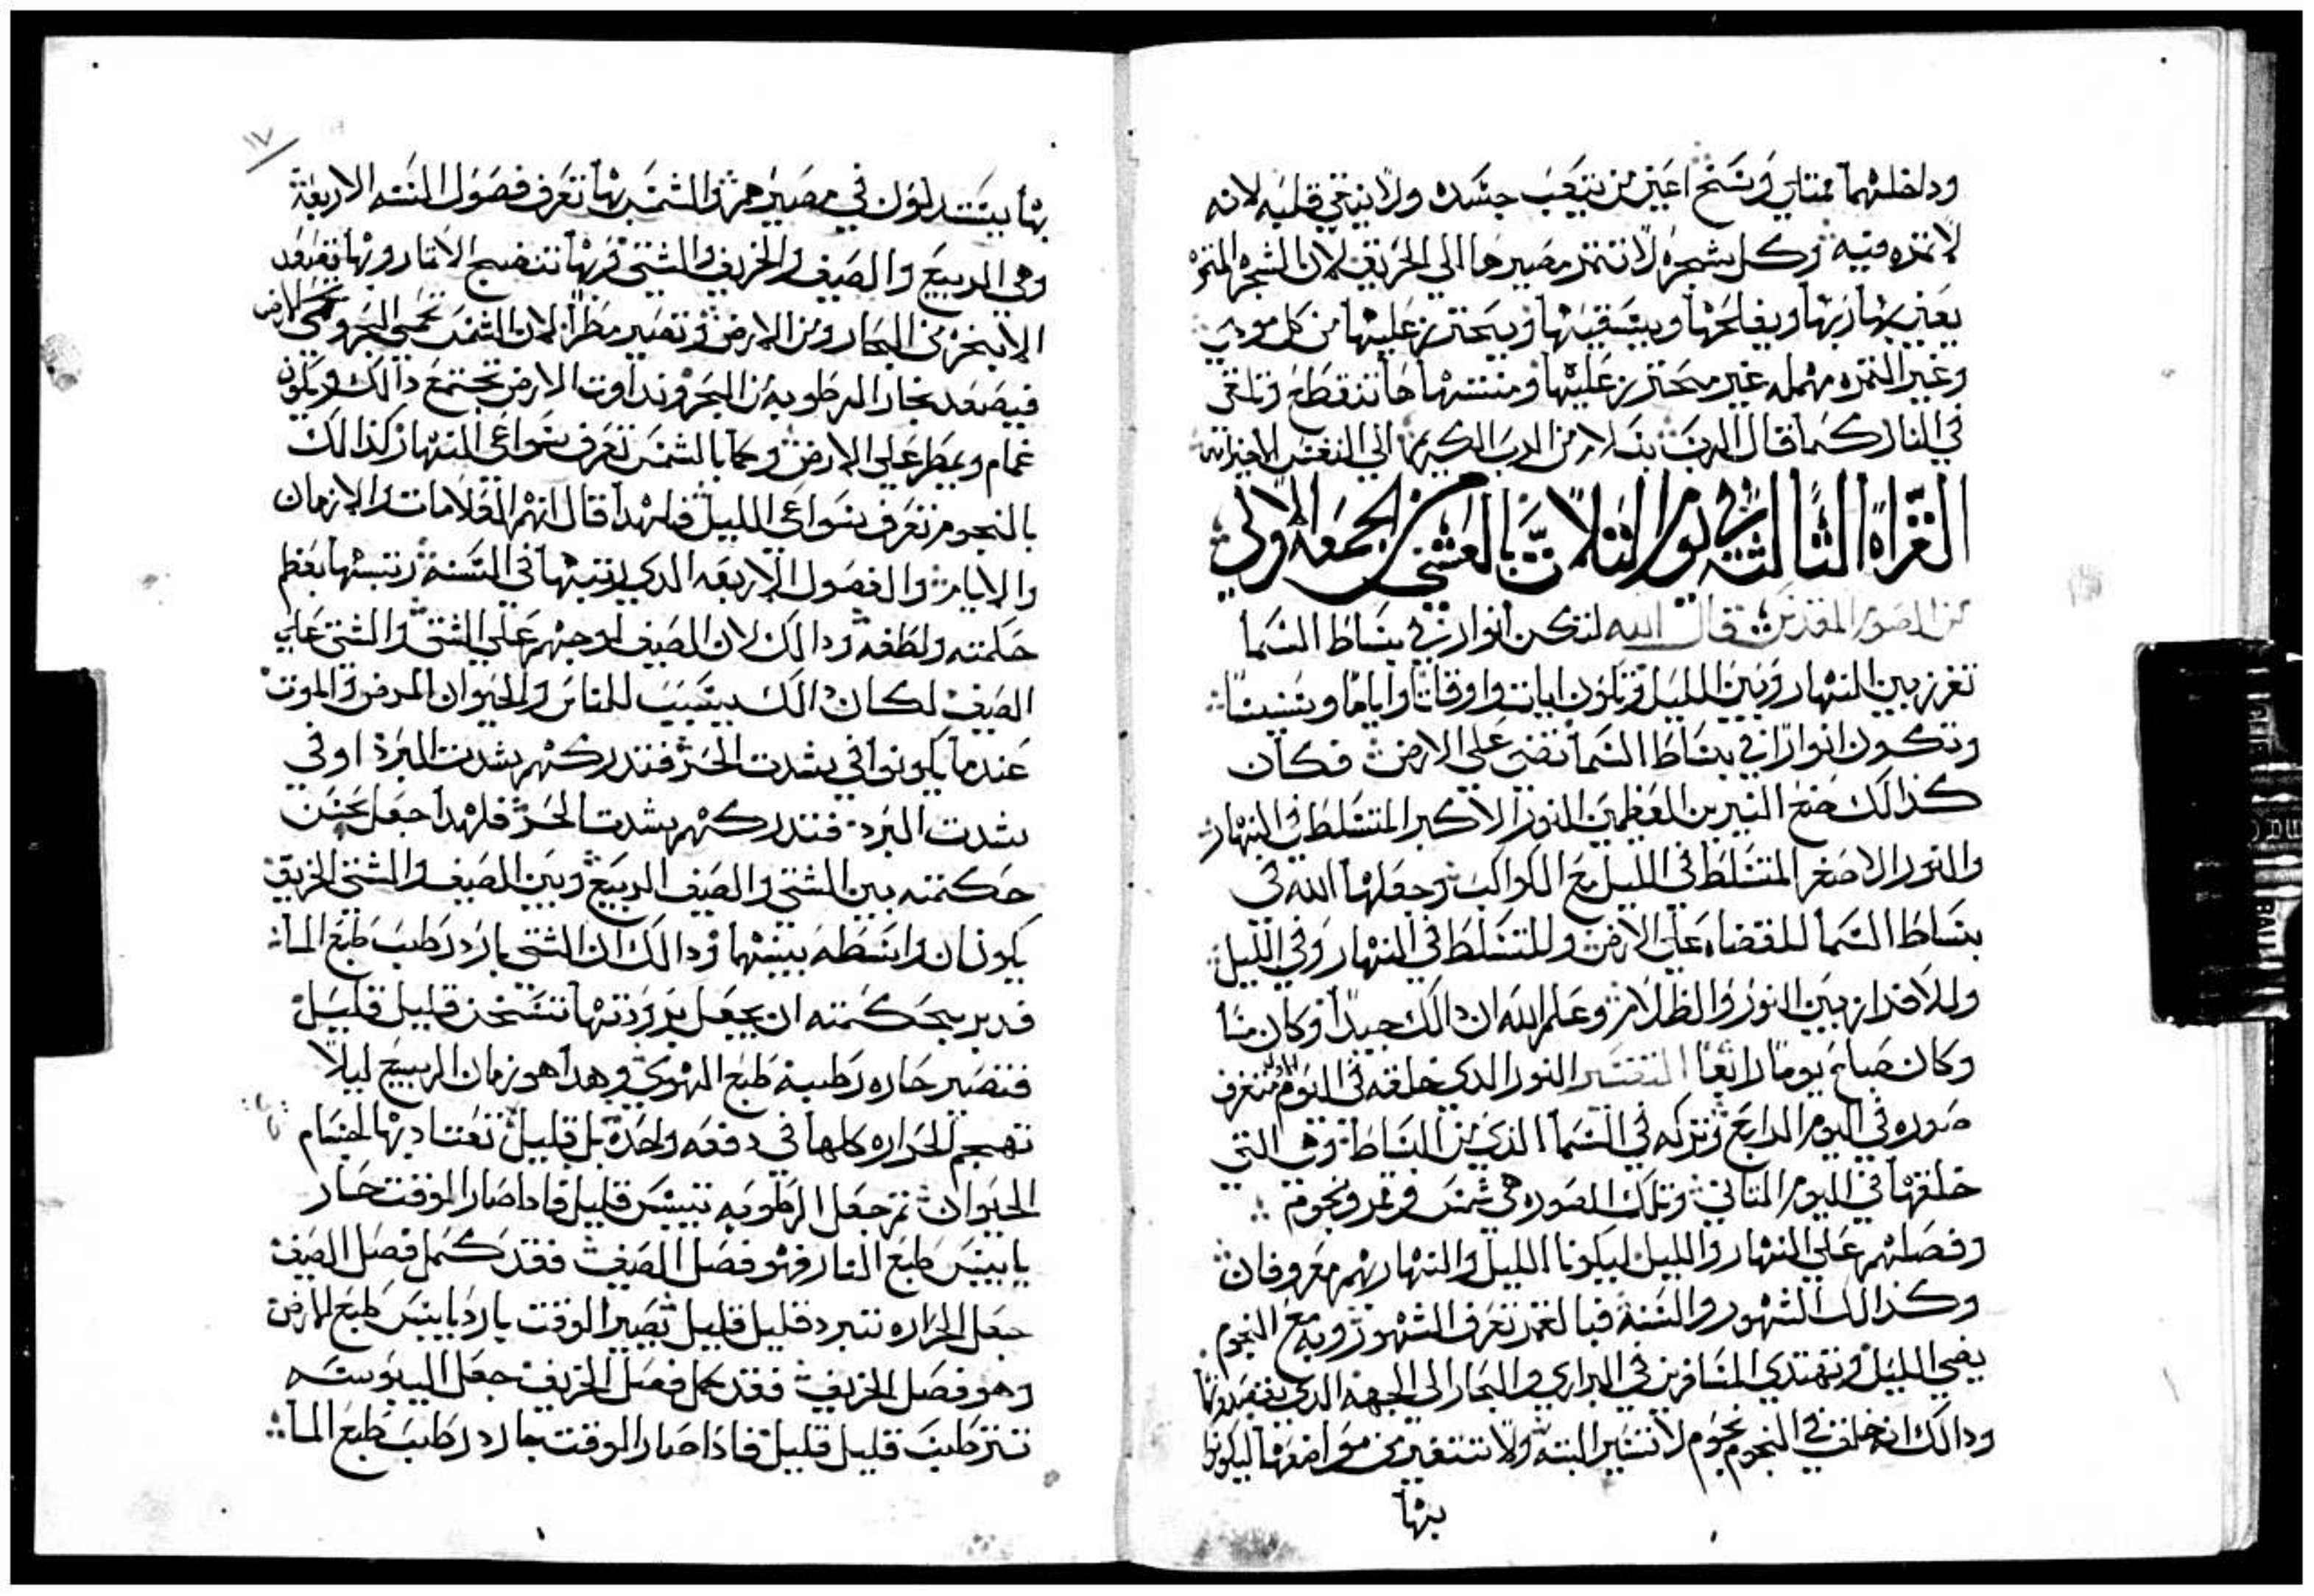 وداخلهما ممتلي وسخ اعني من يتعب جسده ولا ينقي قلبه لانه
لا ثمره فيه وكل شجره لا تثمر مصيرها الي الحريق لان الشجره المثمره
يعتني بها ربها ويفلحها ويسقيها ويحترز عليها من كل موذي
وغير الثمره مهمله غير محترز عليها ومنتهاها تنقطع وتلقي
في النار كما قال الرب
القراة الثالثه في يوم الثلاث بالعشي من الجمعه الاولي
قال الله لتكن انوار في بساط السما
تفرز بين النهار وبين الليل وتكون ايات واوقاتا واياما وسنينا
وتكون انوارا في بساط السما تضي علي الارض فكان
كذالك صنع النيرين العظمين النور الاكبر المتسلط في النهار
والنور الاصغر المتسلط في الليل مع الكواكب وجعلها الله في
بساط السما للقضاء علي الارض وللتسلط في النهار وفي الليل
وللافراز بين النور والظلام وعلم الله ان ذالك جيدا وكان مسا
وكان صباح يوما رابعا التفسير النور الدي خلقه في اليوم
صوره في اليوم الرابع وتركه في السما الذي من البساط وهي التي
خلقها في اليوم الثاني وتلك الصوره هي شمس وقمر ونجوم
وفصلهم علي النهار والليل ليكونا الليل والنهار بهم معروفان
وكذالك الشهور والسنة فبالقمر تعرف الشهور وبه مع النجوم
يضي الليل وتهتدي المسافرين في البراري والبحار الي الجهه الدي يقصدونها
ودالك انه خلق في النجوم نجوم لا تسير البته ولا تتغير من مواضعها ليكونوا
بها
١٧
بها يستدلون في مصيرهم والشمس بها تعرف فصول السنه الاربعة
وهي الربيع والصيف والخريف والشتي وبها تنضج الاثمار وبها تصعد
الابخره من البحار ومن الارض وتصير مطرا لان الشمس تحمي البحر وتحمي الارض
فيصعد بخار الرطوبه من البحر ونداوت الارض تجتمع دالك ويكون
غمام ويمطر علي الارض وكما بالشمس تعرف سواعي النهار كذالك
بالنجوم تعرف سواعي الليل فلهدا قال انهم العلامات والازمان
والايام والفصول الاربعه الدي رتبها في السنة رتبها بعظم
حكمته ولطفه ودالك لان الصيف لو جهم علي الشتي والشتي علي
الصيف لكان دالك يسبب للناس والحيوان المرض والموت
عندما يكونوا في شدت الحر فتدركهم شدت البرد او في
شدت البرد فتدركهم شدت الحر فلهدا جعل بحسن
حكمته بين الشتي والصيف الربيع وبين الصيف والشتي الخريف
يكونان واسطه بينهما ودالك ان الشتي بارد رطب طبع الما
فدبر بحكمته ان يجعل برودتها تسخن قليل قليل
فتصير حاره رطبة طبع الهوي وهدا هو زمان الربيع ليلا
تهجم الحراره كلها في دفعه واحدة بل قليل تعتاد بها اجسام
الحيوان ثم جعل الرطوبه تيبس قليل فادا صار الوقت حار
يابس طبع النار فهو فصل الصيف فقد كمل فصل الصيف
جعل الحراره تتبرد قليل قليل يصير الوقت بارد يابس طبع الارض
وهو فصل الخريف فقد كمل فصل الخريف جعل اليبوسه
تترطب قليل قليل فاذا صار الوقت بارد رطب طبع الما